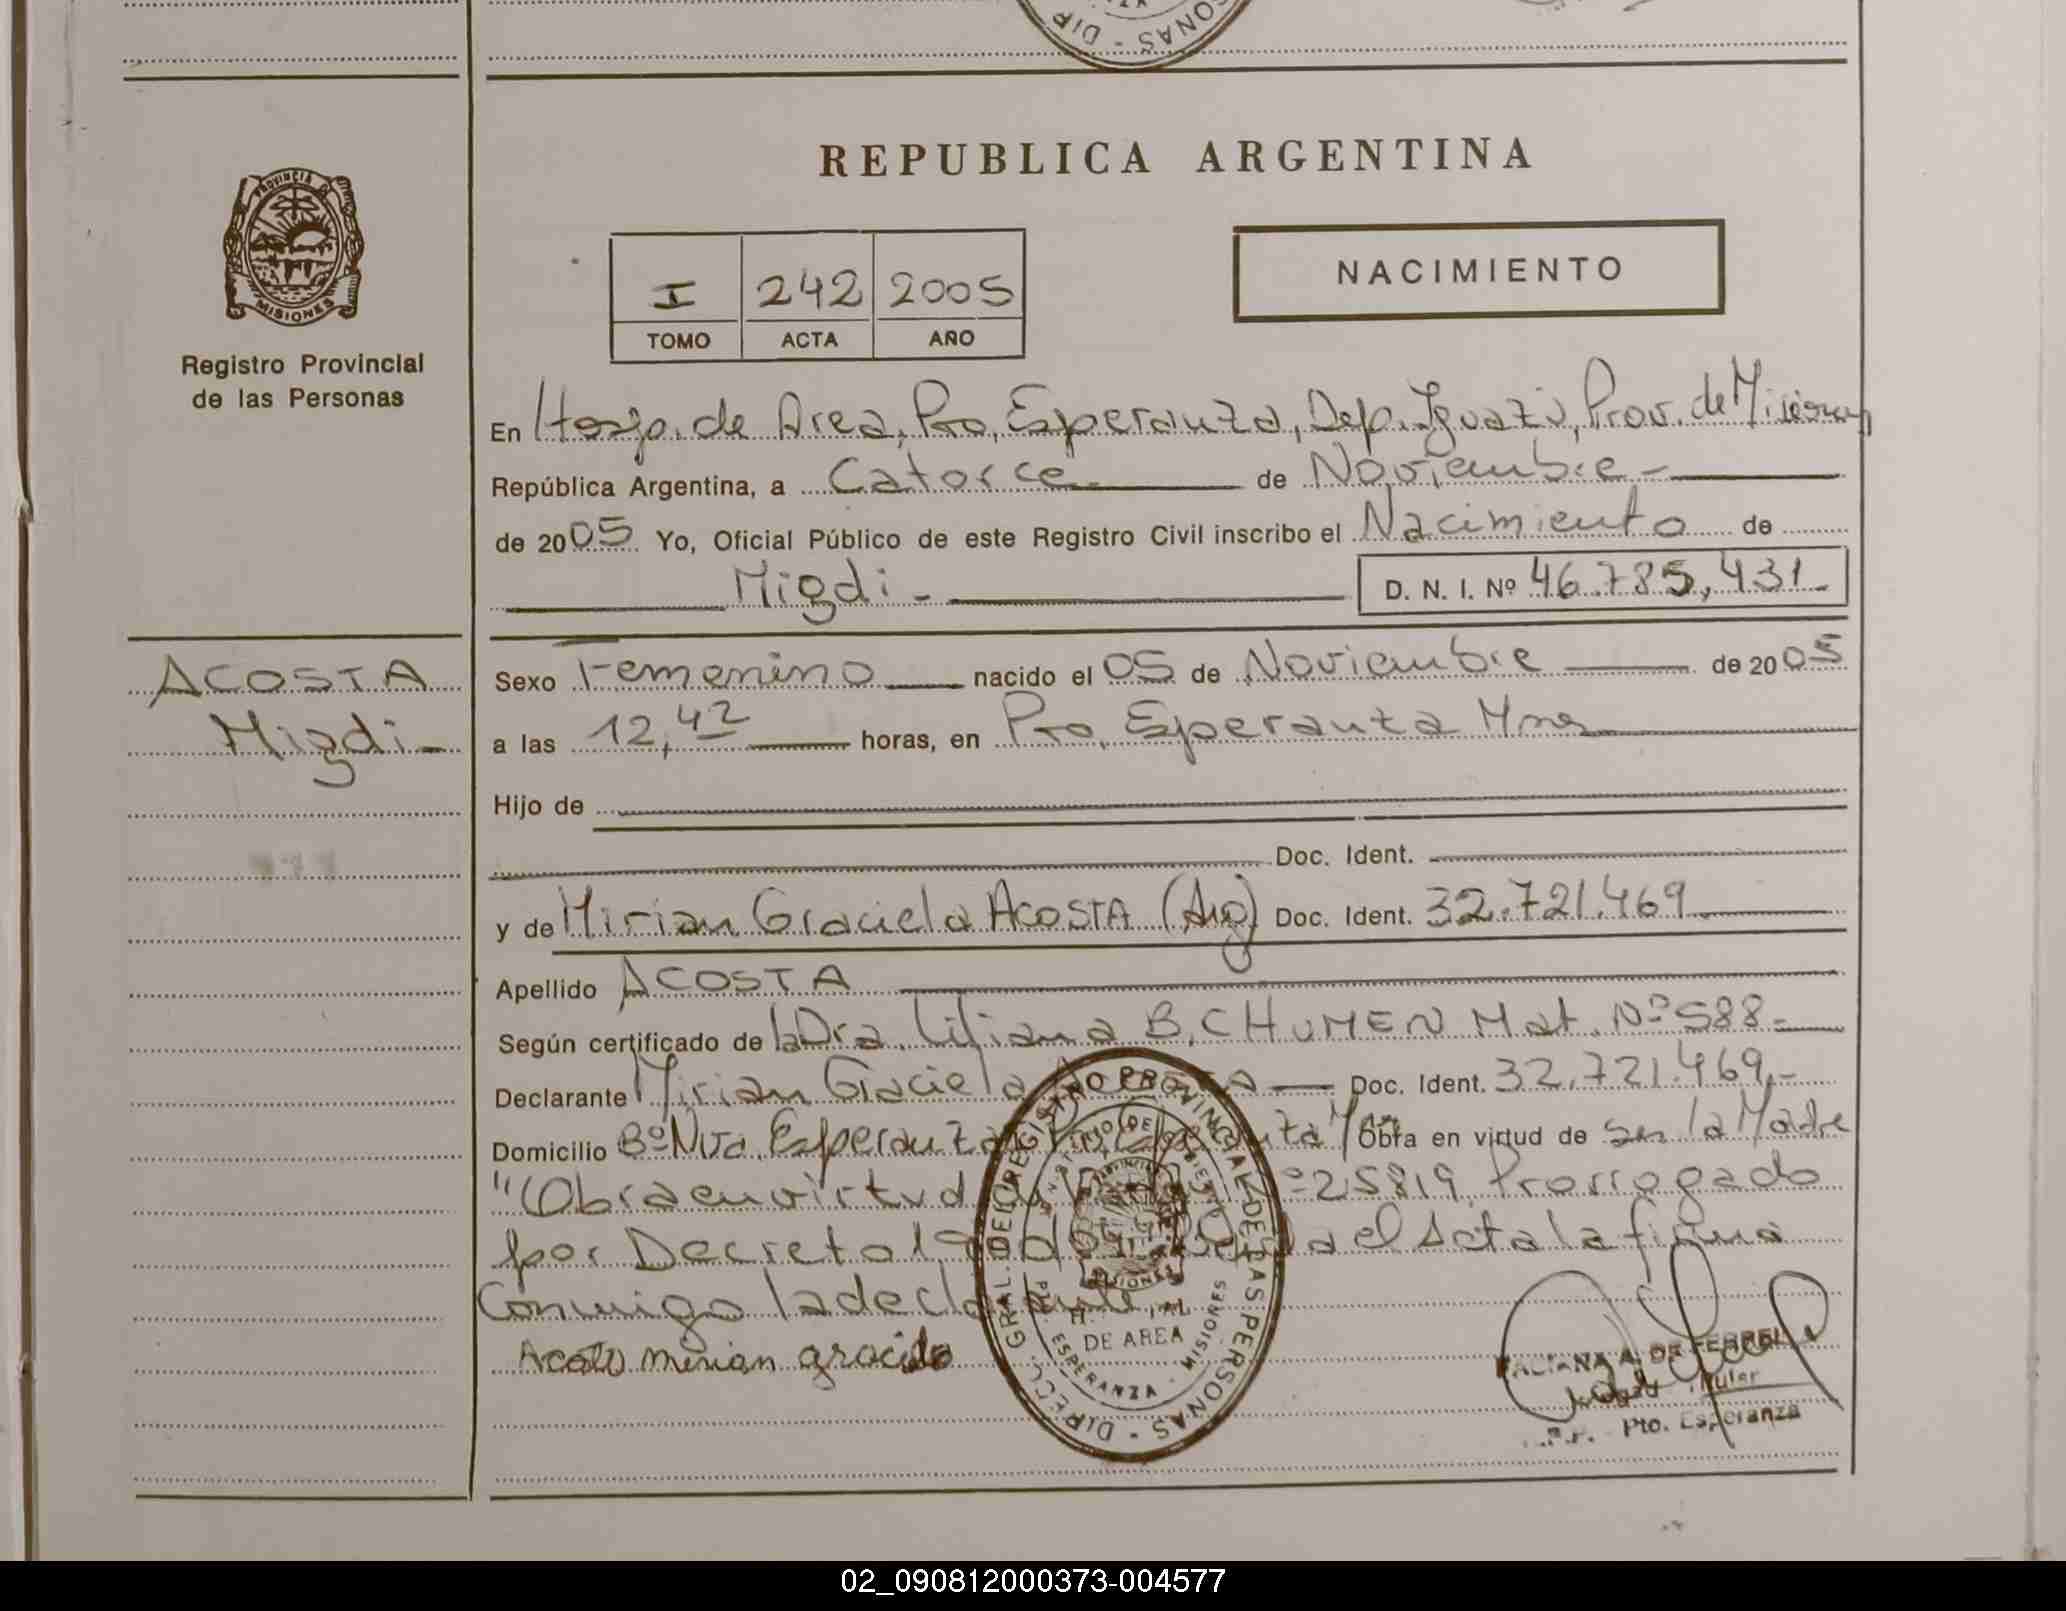 REPUBLICA ARGENTINA
PROVINCIA DE MISIONES
Registro Provincial
de las Personas
I 242 2005
TOMO ACTA AÑO
NACIMIENTO
En Hosp. de Area, Pto, Esperanza, Dep. Iguazú, Prov. de Misiones
República Argentina, a Catorce.- de Noviembre-
de 2005 Yo, Oficial Público de este Registro Civil inscribo el Nacimiento de
Migdi - D. N. I. Nº 46.785,431-
ACOSTA
Migdi-
Sexo Femenino nacido el 05 de Noviembre de 2005
a las 12,42 horas, en Pto, Esperanza Mnes
Hijo de
Doc. Ident.
y de Mirian Graciela ACOSTA (Arg) Doc. Ident. 32.721.469.
Apellido ACOSTA
Según certificado de la Dra. Liliana B. CHUMEN Mat. Nº 588-
Declarante Mirian Graciela Doc. Ident. 32.721.469,-
Domicilio Bº Nva. Esperanza Obra en virtud de ser la Madre
"Obra en virtud 25819 Prorrogado
por Decreto el Acta la firma
Conmigo la
Acosta mirian graciela
DIRECC. GRAL. DEL REGISTRO PROVINCIAL DE LAS PERSONAS
DE AREA
ESPERANZA - MISIONES
DE FERREI
Pto. Esperanza
02_090812000373-004577